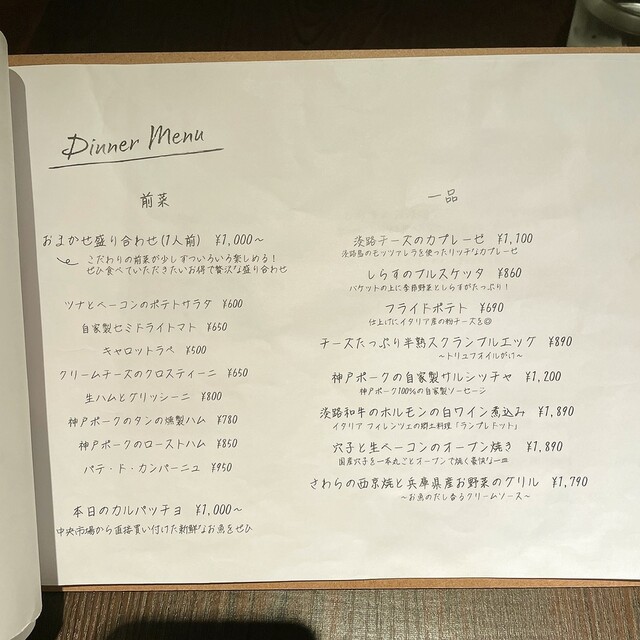 Dinner Menu
前菜
おまかせ盛り合わせ(1人前) ¥1,000～
こだわりの前菜が少しずついろいろ楽しめる！
ぜひ食べていただきたいお得で贅沢な盛り合わせ
ツナとベーコンのポテトサラダ ¥600
自家製セミドライトマト ¥650
キャロットラペ ¥500
クリームチーズのクロスティーニ ¥650
生ハムとグリッシーニ ¥800
神戸ポークのタンの燻製ハム ¥780
神戸ポークのローストハム ¥850
パテ・ド・カンパーニュ ¥950
本日のカルパッチョ ¥1,000～
中央市場から直接買い付けた新鮮なお魚をぜひ
一品
淡路チーズのカプレーゼ ¥1,100
淡路島のモッツァレラを使ったリッチなカプレーゼ
しらすのブルスケッタ ¥860
バケットの上に季節野菜としらすがたっぷり！
フライドポテト ¥690
仕上げにイタリア産の粉チーズを◎
チーズたっぷり半熟スクランブルエッグ ¥890
～トリュフオイルがけ～
神戸ポークの自家製サルシッチャ ¥1,200
神戸ポーク100%の自家製ソーセージ
淡路和牛のホルモンの白ワイン煮込み ¥1,890
イタリア フィレンツェの郷土料理「ランプレドット」
穴子と生ベーコンのオーブン焼き ¥1,890
国産穴子を一本丸ごとオーブンで焼く豪快な一皿
さわらの西京焼と兵庫県産お野菜のグリル ¥1,790
～お魚のだし香るクリームソース～